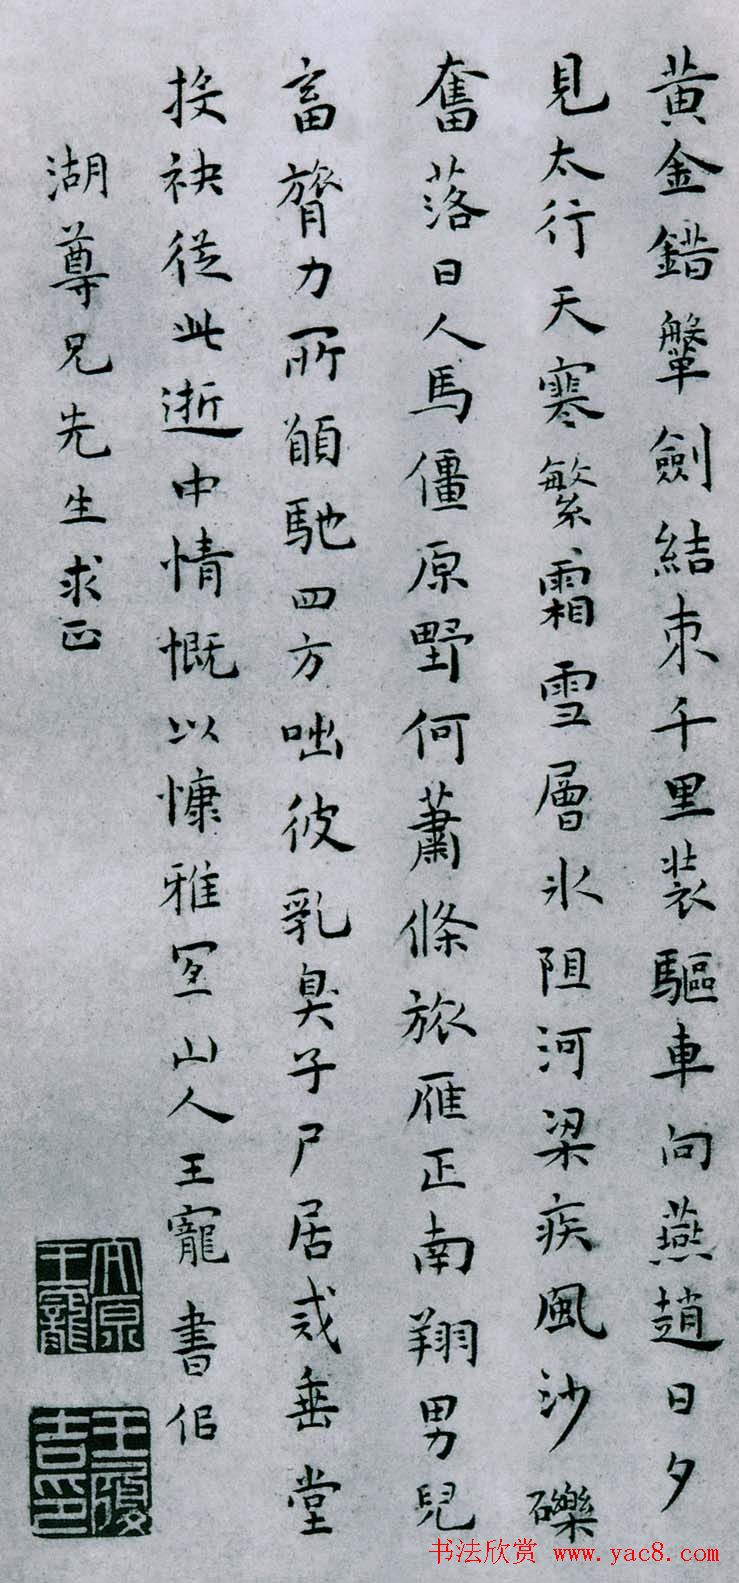 黄金錯鞶劍結束千里装驅車向燕趙日夕
見太行天寒繁霜雪層冰阻河梁疾風沙礫
奮落日人馬僵原野何蕭條旅雁正南翔男兒
畜膂力所願馳四方咄彼乳臭子尸居戒垂堂
投袂從此逝中情慨以慷雅宜山人王寵書似
湖尊兄先生求正
太原王寵
王履吉印
书法欣赏 www.yac8.com